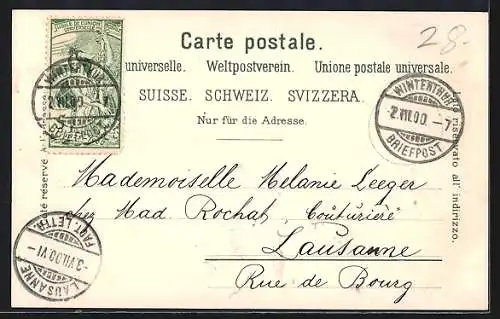 28.-
Carte postale.
universelle. Weltpostverein. Unione postale universale.
SUISSE. SCHWEIZ. SVIZZERA.
Nur für die Adresse.
WINTERTHUR
-2.VII.00.-7
BRIEFPOST
WINTERTHUR
VII.00.
riservato all' indirizzo.
té réservé
Mademoiselle Melanie Leeger
chez Mad. Rochat, Couturière
Lausanne
Rue de Bourg
LAUSANNE
-3.VII.00.VI-
FACT. LETTR.